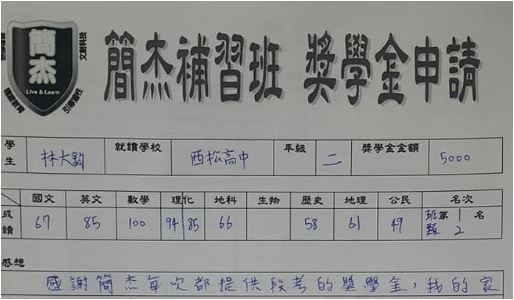 簡杰
Live & Learn
簡杰補習班 獎學金申請
學生 林大鈞 就讀學校 西松高中 年級 二 獎學金金額 5000
國文 英文 數學 理化 地科 生物 歷史 地理 公民 名次
成績 67 85 100 94 85 66 58 61 49 班第1名
類 2
感想
感謝簡杰每次都提供段考的獎學金,我的家